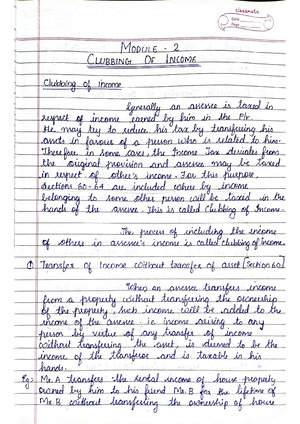 classmate
Date
Page
MODULE - 2
CLUBBING OF INCOME
Clubbing of income
Generally an assessee is taxed in
respect of income earned by him in the P/Y.
He may try to reduce his tax by transferring his
assets in favour of a person who is related to him.
Therefore in some cases, the Income Tax deviates from
the original provision and assessee may be taxed
in respect of other's income. For this purpose,
Sections 60-64 are included where by income
belonging to some other person will be taxed in the
hands of the assessee. This is called Clubbing of Income.
The process of including the income
of others in assessee's income is called clubbing of Income.
① Transfer of Income without transfer of asset [Section 60]
When an assessee transfers income
from a property without transferring the ownership
of the property, such income will be added to the
income of the assessee i.e income arising to any
person by virtue of any transfer of income
without transferring the asset, is deemed to be the
income of the transferor and is taxable in his
hands.
Eg: Mr. A transfers the rental income of house property
owned by him to his friend Mr. B for the lifetime of
Mr. B without transferring the ownership of house